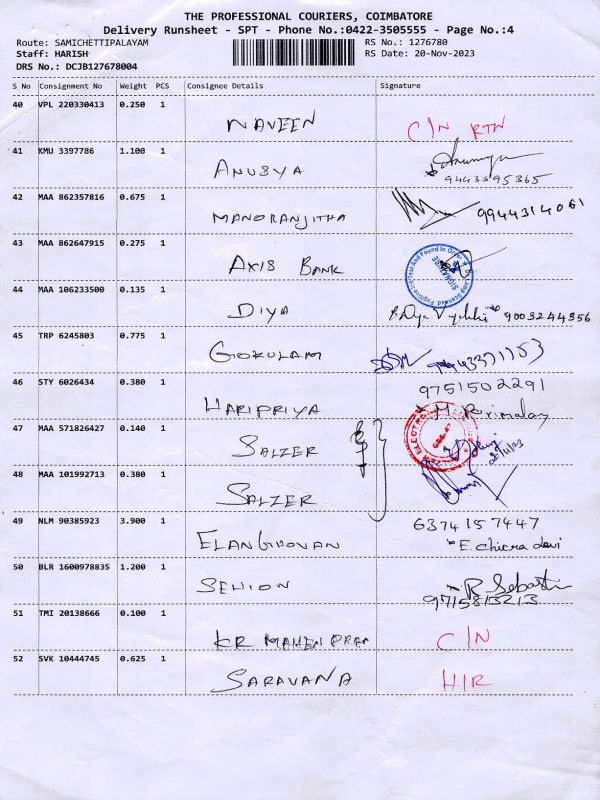 THE PROFESSIONAL COURIERS, COIMBATORE
Delivery Runsheet - SPT - Phone No.:0422-3505555 - Page No.:4
Route: SAMICHETTIPALAYAM RS No.: 1276780
Staff: HARISH RS Date: 20-Nov-2023
DRS No.: DCJB127678004
S No Consignment No Weight PCS Consignee Details Signature
40 VPL 220330413 0.250 1 NAVEEN C/N RTN
41 KMU 3397786 1.100 1 ANUSYA 9443395365
42 MAA 862357816 0.675 1 MANORANJITHA 9944314061
43 MAA 862647915 0.275 1 AXIS BANK
44 MAA 106233500 0.135 1 DIYA 9003244356
45 TRP 6245803 0.775 1 GOKULAM
46 STY 6026434 0.380 1 HARIPRIYA 9751502291
47 MAA 571826427 0.140 1 SALZER
48 MAA 101992713 0.380 1 SALZER
49 NLM 90385923 3.900 1 ELANGROVAN 6374157447
E. Chitra devi
50 BLR 1600978835 1.200 1 SEHION R Sebasti
9715815213
51 TMI 20138666 0.100 1 KR MAHENDRAN C/N
52 SVK 10444745 0.625 1 SARAVANA H/R